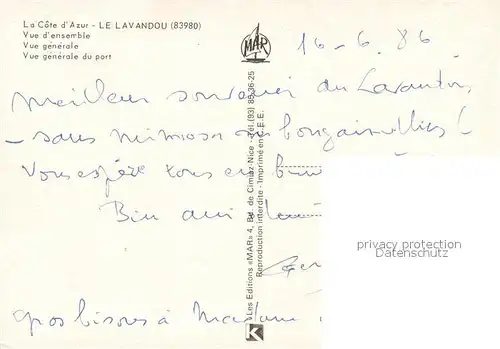 La Côte d'Azur - LE LAVANDOU (83980)
Vue d'ensemble
Vue générale
Vue générale du port
MAR
16-6.86
Meilleur souvenir du Lavandou
- sans mimosa ou bougainvilliers!
Vous espère tous en
Bien ami
Gros bisous à Madame
Les Editions «MAR» 4, Bd. de Cimiez-Nice - Tél. (93) 81.36-25
Reproduction interdite - Imprimé en C.E.E.
K
privacy protection
Datenschutz